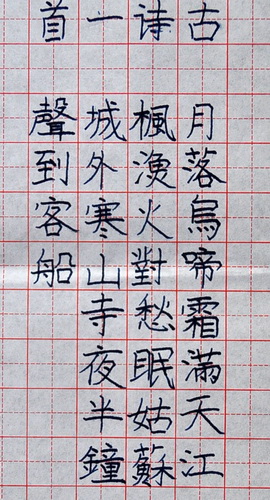 古诗一首
月落烏啼霜滿天江
楓漁火對愁眠姑蘇
城外寒山寺夜半鐘
聲到客船